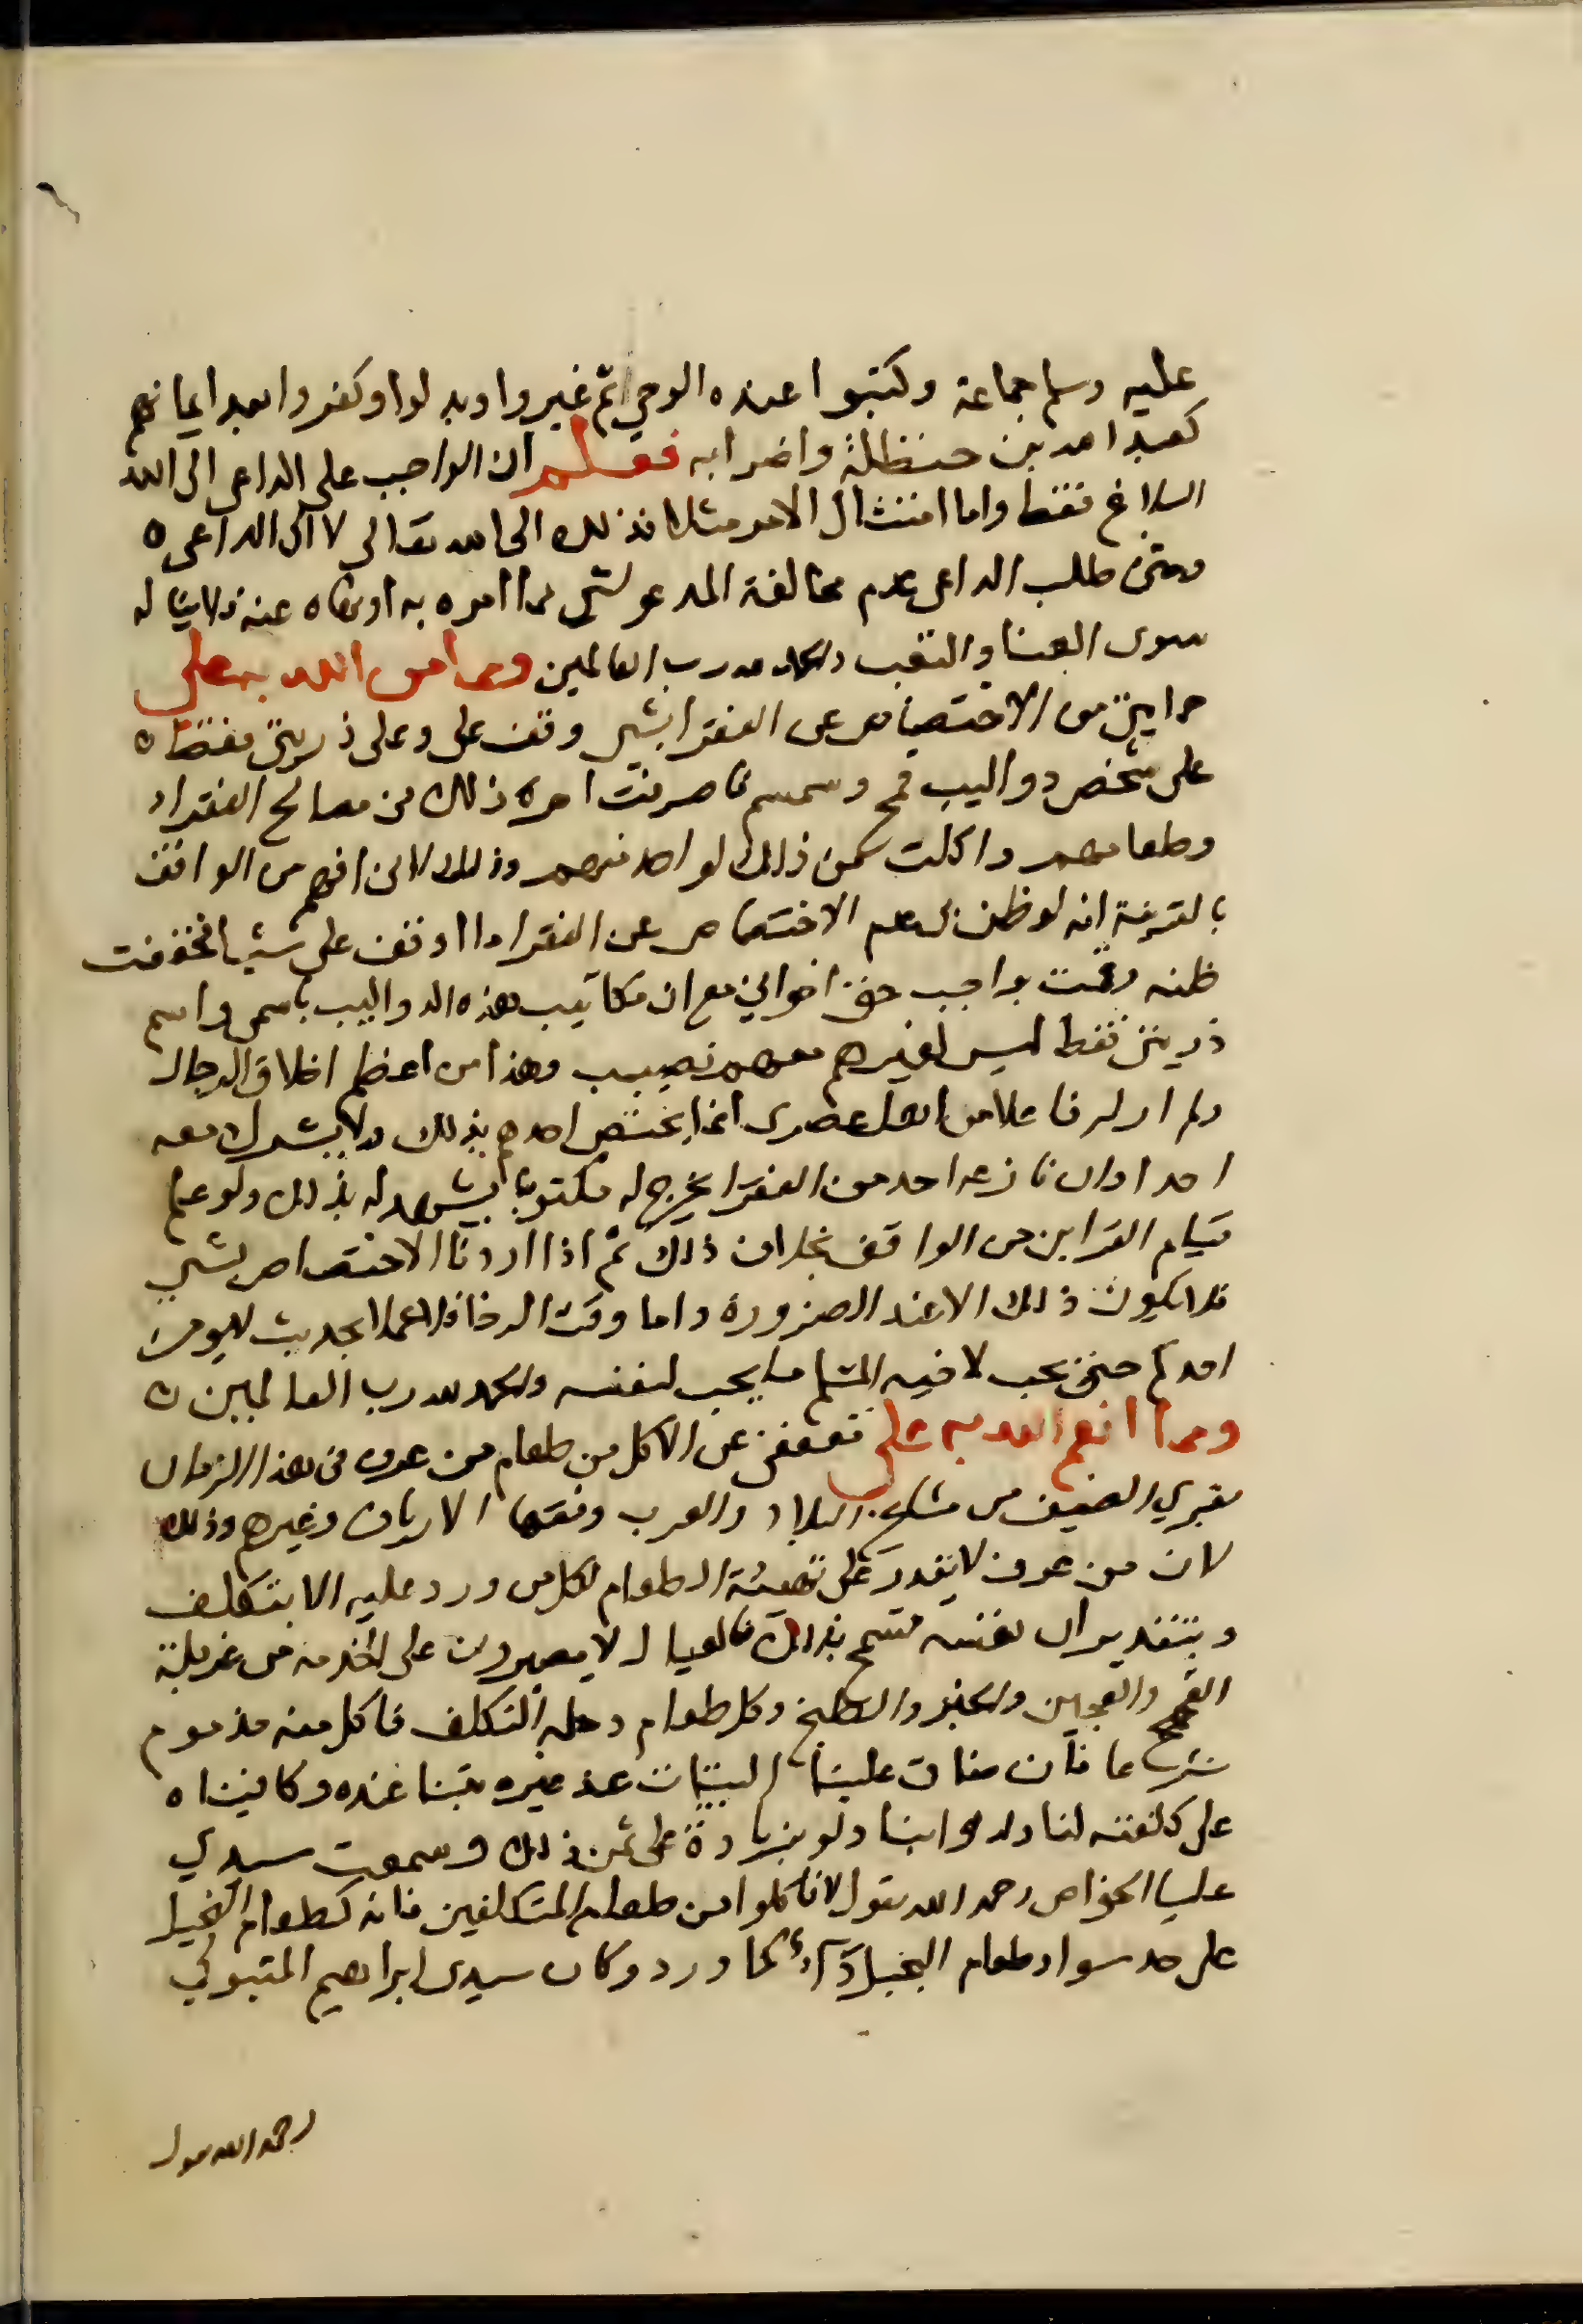 عليه وسلم جماعة وكتبوا عنده الوحي ثم غيروا وبدلوا وكفروا بعد ايمانهم
كعبد الله بن حنظلة واضرابه فعلم ان الواجب على الداعي الى الله
البلاغ فقط واما امتثال الامر مثلا فذلك الى الله تعالى لا الى الداعي ه
ومتى طلب الداعي عدم مخالفة المدعو لشي مما امره به او نهاه عنه فلا يناله
سوى العنا والتعب والحمد لله رب العالمين ومما من الله به علي
حمايتي من الاختصاص عن الفقرا بشي وقف علي وعلى ذريتي فقط ه
على شخص دواليب قمح وسمسم فاصرفت اجرة ذلك في مصالح الفقراء
وطعامهم واكلت من ذلك كواحد منهم وذلك لاني افهم من الواقف
بالقرينة انه لو ظن بي عدم الاختصاص عن الفقراء ما اوقف علي شيا فحققت
ظنه وقمت بواجب حق اخواني مع ان مكاتيب هذه الدواليب باسمي واسم
ذريتي فقط ليس لغيرهم معهم نصيب وهذا من اعظم اخلاق الرجال
ولم ار له فاعلا من اهل عصري انما يختص احدهم بذلك ولا يشرك معه
احدا وان نازعه احد من الفقرا يخرج له مكتوبا يشهد له بذلك ولو علم
قيام القراين من الواقف بخلاف ذلك ثم اذا اردنا الاختصاص بشي
فلا يكون ذلك الا عند الضرورة واما وقت الرخا فلا عملا بحديث لا يومن
احدكم حتى يحب لاخيه المسلم ما يحب لنفسه والحمد لله رب العالمين ه
ومما انعم الله به علي تعففي عن الاكل من طعام من عرف في هذا الزمان
بقري الضيف من مشايخ البلاد والعرب وفقها الارياف وغيرهم وذلك
لان من عرف لا يقدر على تهيئة الطعام لكل من ورد عليه الا بتكلف
وبتقدير ان نفسه تسمح بذلك فالعيال لا يصبرون على الخدمة من غربلة
القمح والعجين والخبز والطبخ وكل طعام دخله التكلف فاكل منه مذموم
شرعا فان بتنا عند غيره بتنا عنده وكافيناه
على كلفته لنا ولدوابنا ولو بزيادة على ثمن ذلك وسمعت سيدي
عليا الخواص رحمه الله يقول لا تاكلوا من طعام المتكلفين فانه كطعام البخيل
على حد سوا وطعام البخيل داء كما ورد وكان سيدي ابراهيم المتبولي
رحمه الله يقول